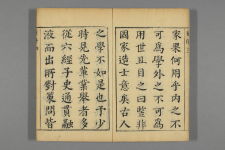 家果何用乎内之不
可爲學外之不可爲
用世且目之曰蠧非
國家造士意矣古人
之學不如是也予少
時見先軰業舉者多
從六經子史通貫融
液而出所對策問皆